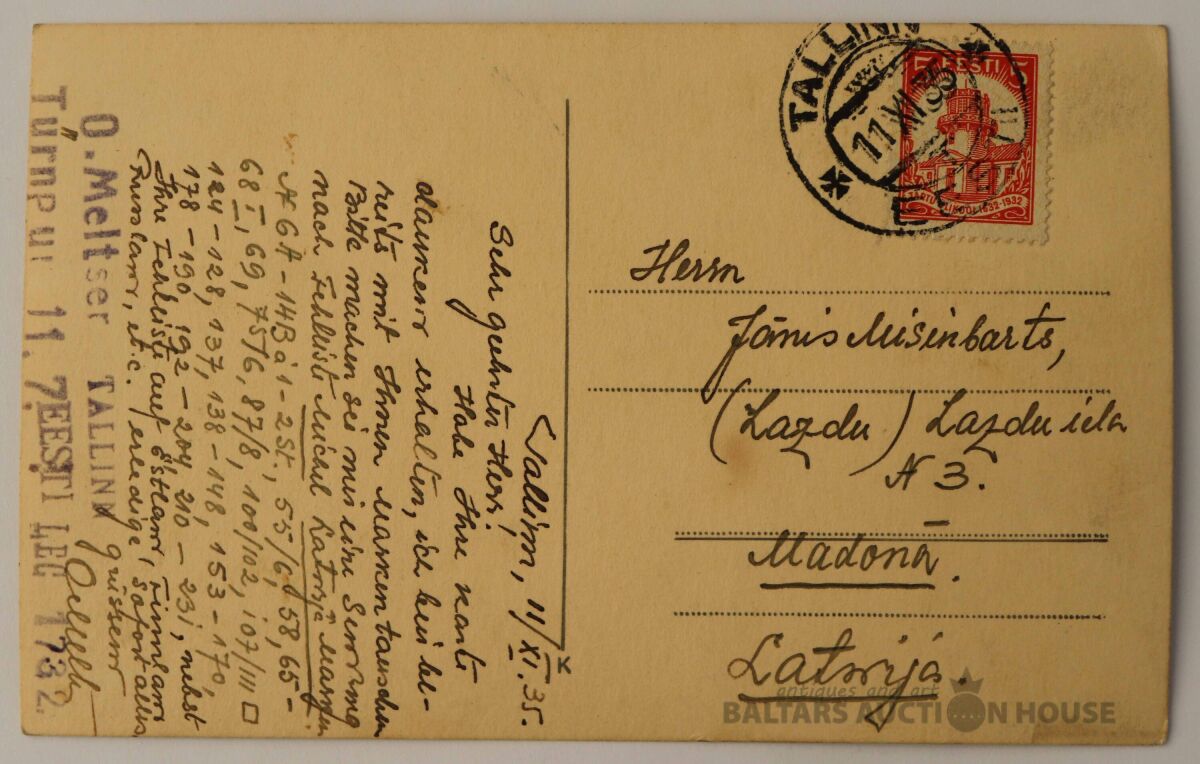 Tallinn, 11/XI.35.
Sehr geehrter Herr!
Habe Ihre Karte
dankend erhalten, ich bin be-
reits mit Ihnen Marken tauschen
Bitte machen sei mir eine Sendung
nach Fehlliste Michel Latvija Marken
№ 6A-14B à 1-2St., 55/6, 58, 65-
68 I, 69, 75/6, 87/8, 100/102, 107/111 □
124-128, 137, 138-148, 153-170,
178-190, 192-204, 210-231, nebst
Ihre Fehlliste auf Estland, Finnland
Russland, etc. erledige sofort alles
grüssend
O. Meltser TALLINN
Türnpu 11. 7 EESTI LEG 1782.
TALLINN
11 XI 35
EESTI
5 5
TARTU ÜLIKOOL 1632-1932
Herrn
Jānis Misinbarts,
(Lazdu) Lazdu iela
N 3.
Madonā.
Latvijā.
K
antiques and art
BALTARS AUCTION HOUSE